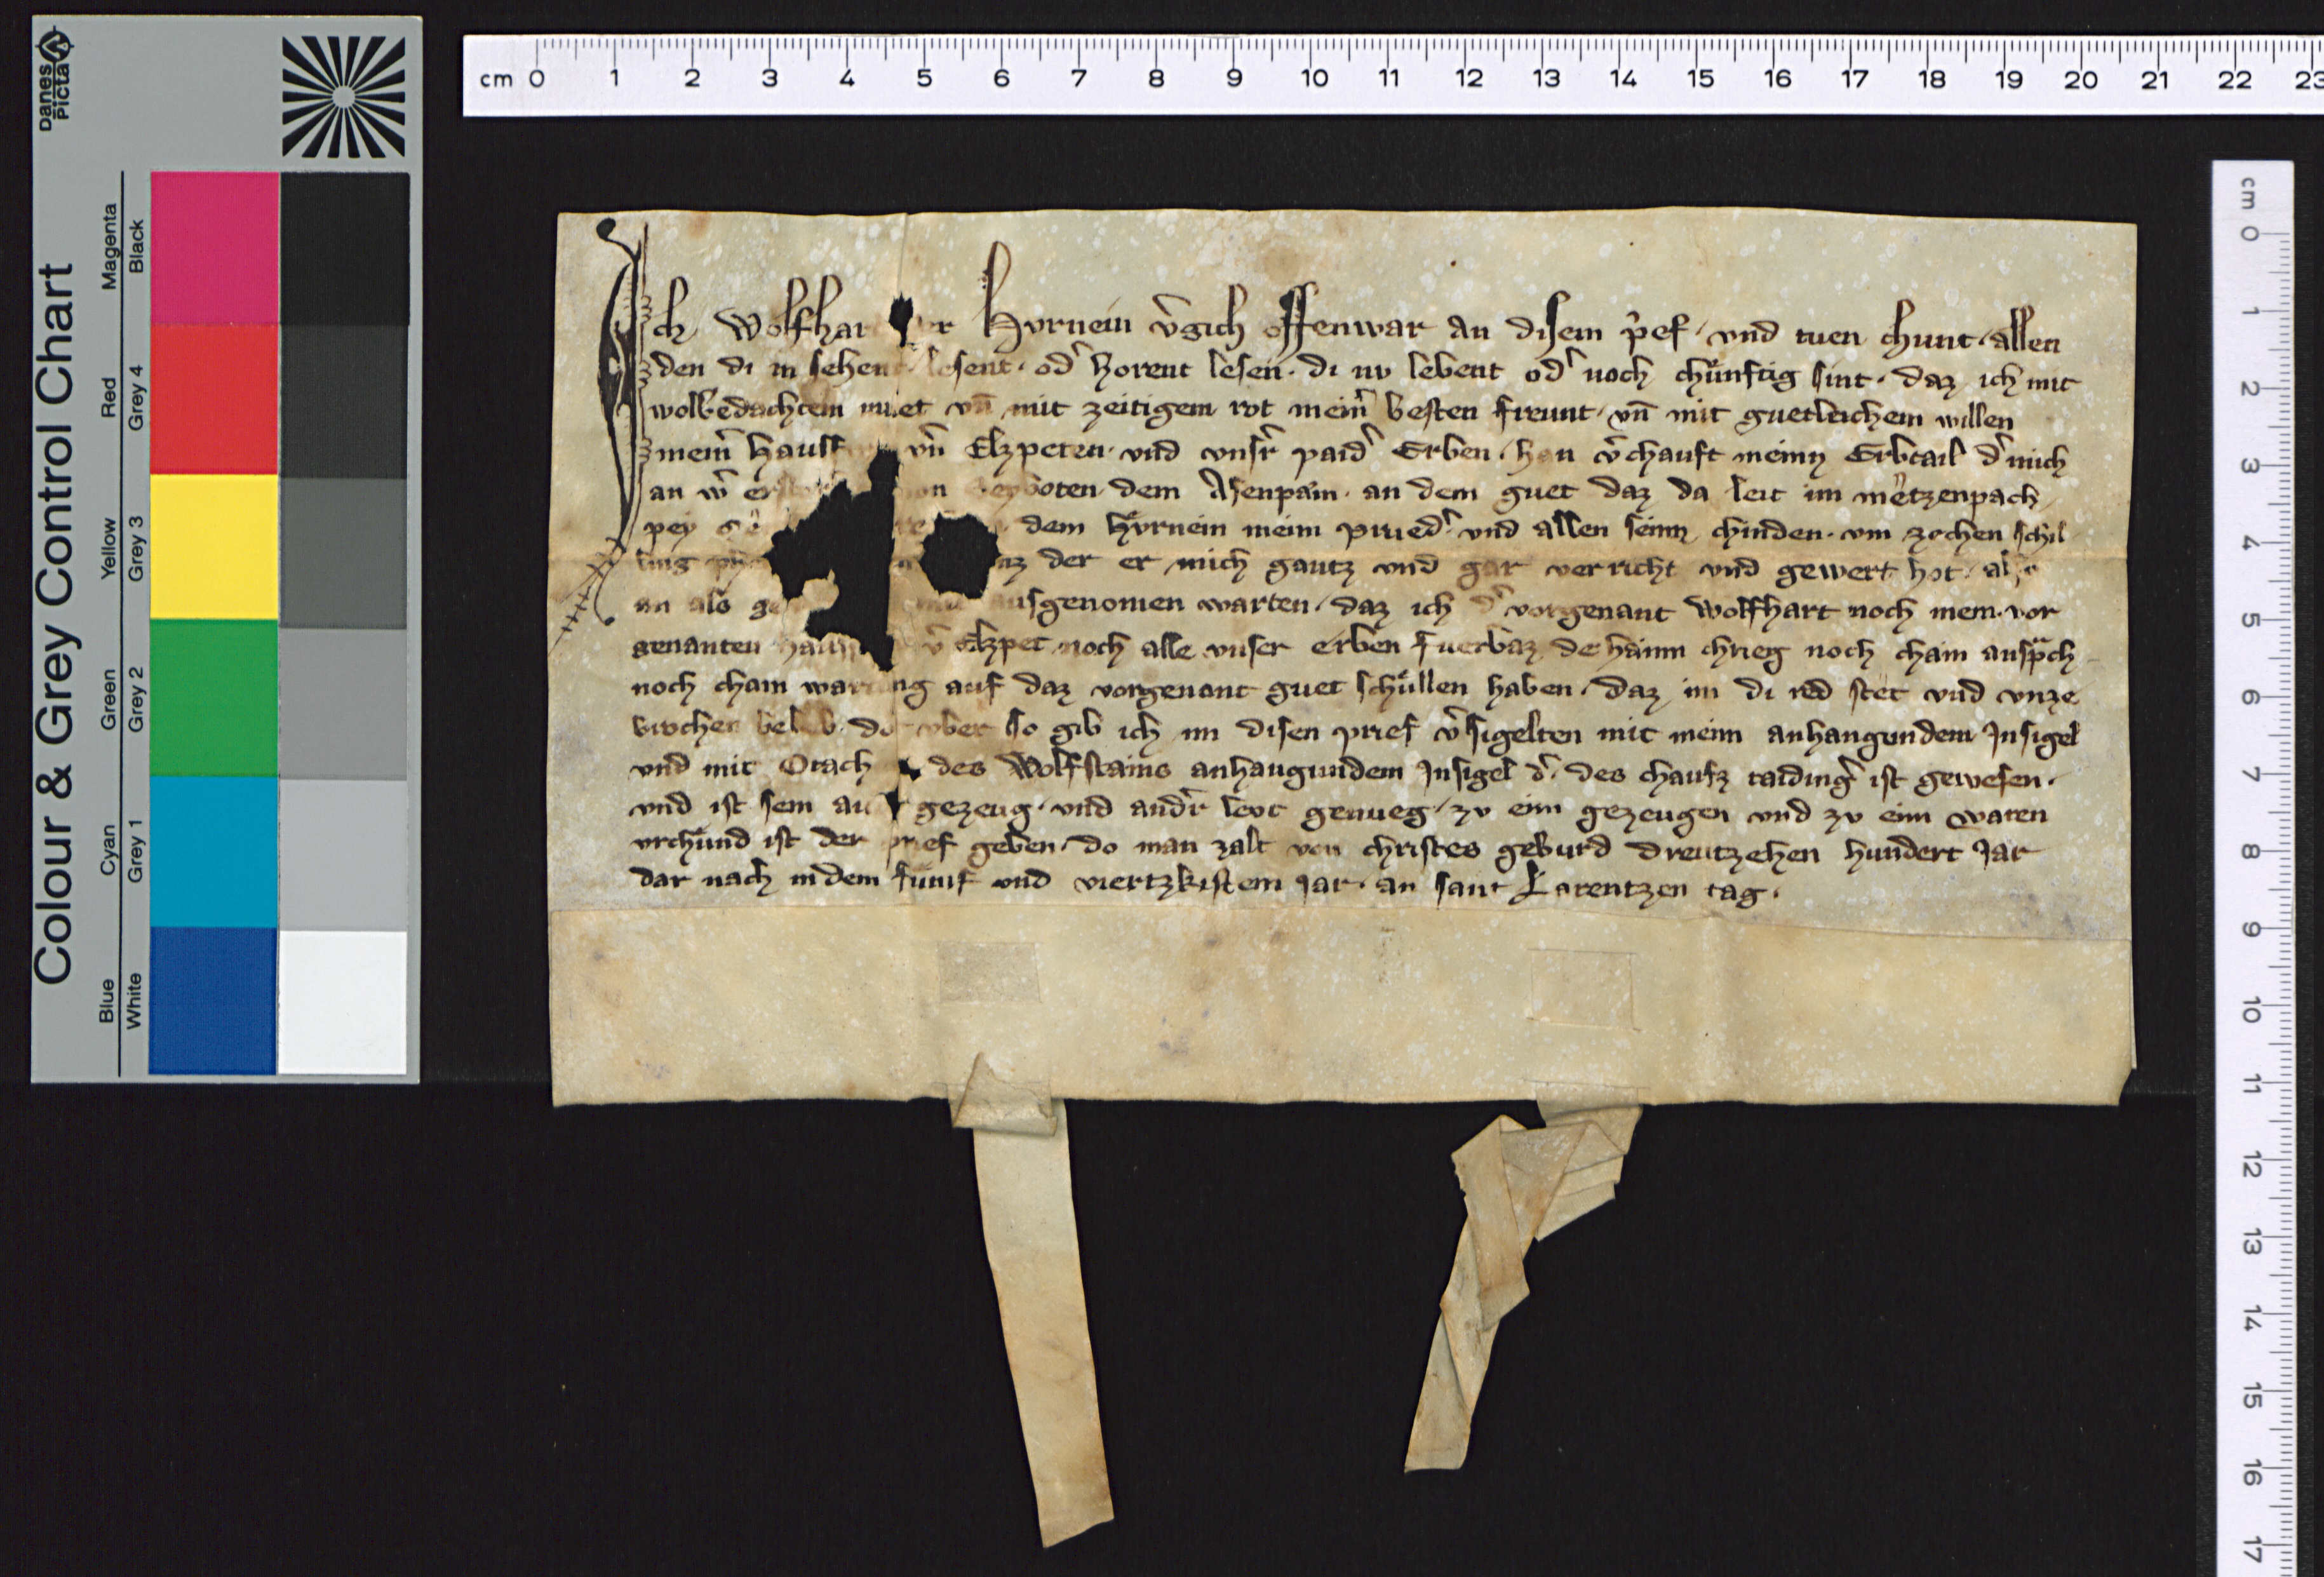 Ich Wolfhar der Hvrnein v̾gich offenwar an disem p̾ef und tuen chunt allen
den di in sehent lesent od̾ horent lesen di nv lebent od̾ noch chu̍nftig sint daz ich mit
wolbedachtem muet vn̄ mit zeitigem rot mein̾ besten freunt vn̄ mit guetleichem willen
mein̾ Elzpeten und vnsr̾ paid̾ Erben han v̾chauft meinn Erbtail d̾ mich
an dem Asenpa̍m an dem guet daz da leit im me̍tzenpach
pey dem Hvrnein meim prued̾ und allen seinn chinden um zechen schil
ling daz der er mich gantz und gar verricht und gewert hot also
an als ausgenomen warten daz ich d̾ vorgenant Wolfhart noch mein vor
genanten Elzpet noch alle unser erben fuerbaz dehainn chrieg noch chain ansp̾ch
noch chain wartung auf daz vorgenant guet schu̍llen haben daz im di red stet und unze
brochen beleib dar uber so gib ich im disen prief v̾sigelten mit meim anhangundem Insigel
und mit Otach des Wolfstains anhangundem Insigel d̾ des chaufz taiding̾ ist gewesen
und ist sein auch gezeug und andr̾ levt genueg zv eim gezeugen und zv eim waren
vrchu̍nd ist der prief geben do man zalt von christes geburd dreutzehen hundert Jar
dar nach in dem fu̍mf und viertzkistem Jar an sant Larentzen tag
Colour & Grey Control Chart
Danes Picta
Blue Cyan Green Yellow Red Magenta
White Grey 1 Grey 2 Grey 3 Grey 4 Black
cm 0 1 2 3 4 5 6 7 8 9 10 11 12 13 14 15 16 17 18 19 20 21 22 23
cm 0 1 2 3 4 5 6 7 8 9 10 11 12 13 14 15 16 17